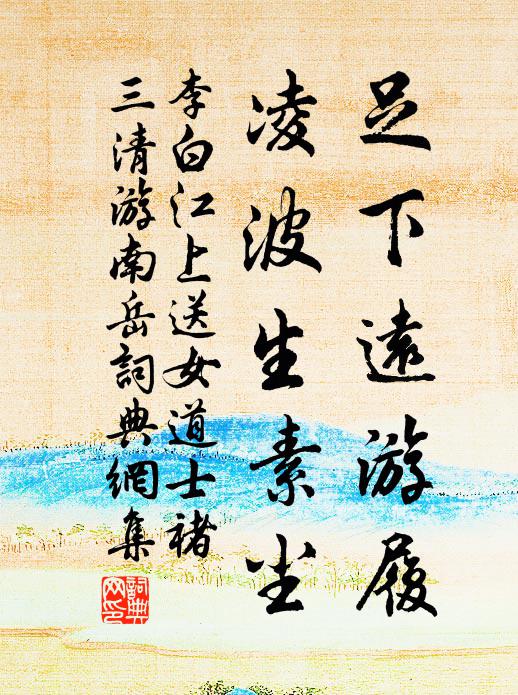 足下遠游履
凌波生素尘
李白江上送女道士褚
三清游南岳詞典網集